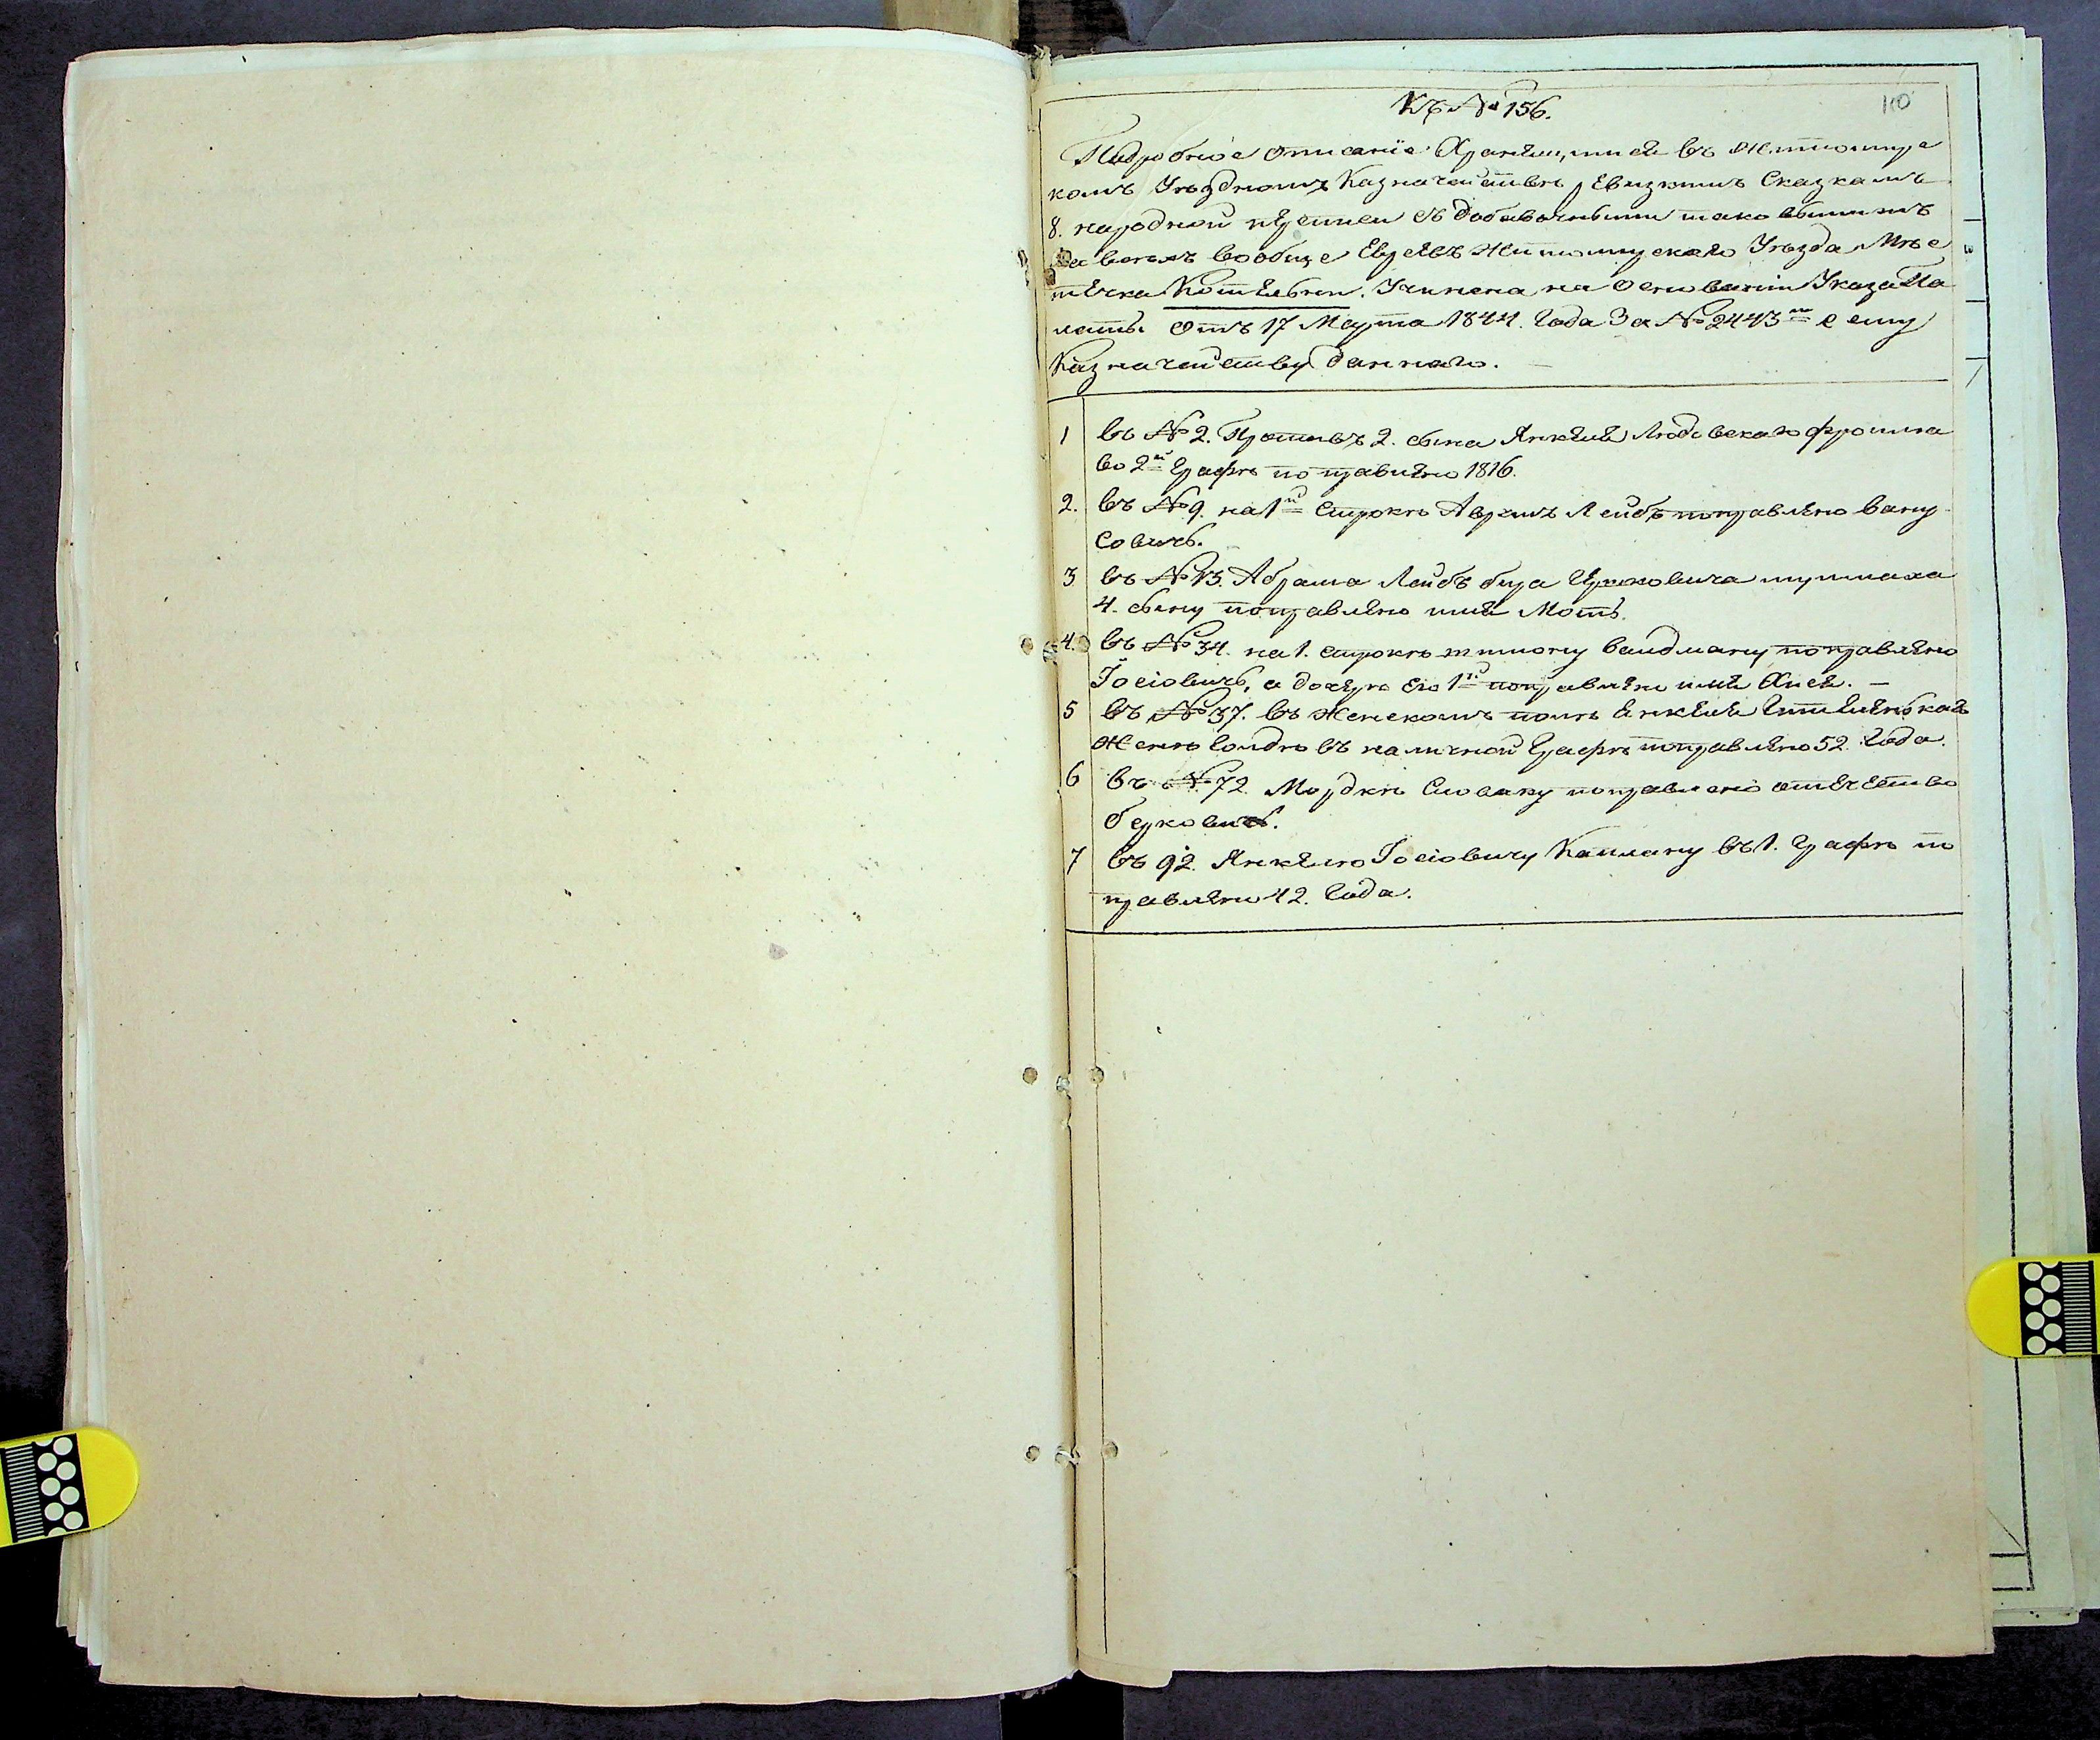 Къ № 156.
110
Подробное описаніе Хранящимся въ Житомирс
комъ Уѣздномъ Казначействѣ ревизкимъ Сказкамъ
8. народной переписи съ добавочными таковыми жъ
о всѣхъ вообще Евреевъ Житомирскаго Уѣзда Мѣс
течка Котельни. Учинена на основаніи Указа Па
латы отъ 17 Марта 1844. Года За № 2443м сему
Казначейству даннаго. —
1 въ № 2. Противъ 2. сына Янкеля Любовскаго Фроима
во 2й Графѣ поправлено 1816.
2. въ № 9. на 1й Строкѣ Аврумъ Лейбѣ поправлено
совичь.
3 въ № 13. Абрама Лейбъ бера Ицковича
4. сыну поправлено имя Моть.
4. въ № 34. на 1. строкѣ Вайдману поправлено
Іосіовичь, а дочерѣ его 1й поправлено имя Хися. —
5 въ № 37. въ Женскомъ полѣ Янкеля
Женѣ Голдѣ въ наличной Графѣ поправлено 52. Года.
6 въ № 72. Мордкѣ Словаку поправлено отечество
берковичь.
7 въ 92. Янкелю Іосіовичу Каплану въ 1. Графѣ по
правлено 42. Года.